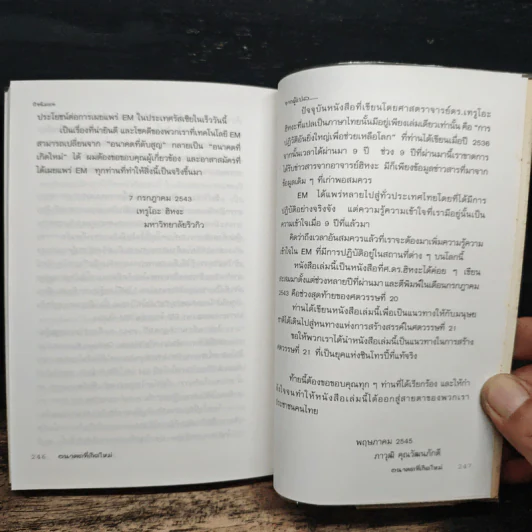 ประโยชน์ต่อการเผยแพร่ EM ในประเทศรัสเซียในเร็ววันนี้
เป็นเรื่องที่น่ายินดี และโชคดีของพวกเราที่เทคโนโลยี EM
สามารถเปลี่ยนจาก "อนาคตที่ดับสูญ" กลายเป็น "อนาคตที่
เกิดใหม่" ได้ ผมต้องขอขอบคุณผู้เกี่ยวข้อง และอาสาสมัครที่
ได้เผยแพร่ EM ทุกท่านที่ทำให้สิ่งนี้เป็นจริงขึ้นมา
7 กรกฎาคม 2543
เทรูโอะ ฮิหงะ
มหาวิทยาลัยริวกิว
246 อนาคตที่เกิดใหม่
ปัจจุบันหนังสือที่เขียนโดยศาสตราจารย์ดร.เทรูโอะ
ฮิหงะที่แปลเป็นภาษาไทยนั้นมีอยู่เพียงเล่มเดียวเท่านั้น คือ "การ
ปฏิบัติอันยิ่งใหญ่เพื่อช่วยเหลือโลก" ที่ท่านได้เขียนเมื่อปี 2536
จากนั้นเวลาได้ผ่านมา 9 ปี ช่วง 9 ปีที่ผ่านมานี้เราขาดการ
ได้รับข่าวสารจากอาจารย์ฮิหงะ มีก็เพียงข้อมูลข่าวสารที่มาจาก
ข้อมูลเดิม ๆ ที่เก่าพอสมควร
EM ได้แพร่หลายไปสู่ทั่วประเทศไทยโดยที่ได้มีการ
ปฏิบัติอย่างจริงจัง แต่ความรู้ความเข้าใจที่เรามีอยู่นั้นเป็น
ความเข้าใจเมื่อ 9 ปีที่แล้วมา
คิดว่าถึงเวลาอันสมควรแล้วที่เราจะต้องมาเพิ่มความรู้ความ
เข้าใจใน EM ที่มีการปฏิบัติอยู่ในสถานที่ต่าง ๆ บนโลกนี้
หนังสือเล่มนี้เป็นหนังสือที่ศ.ดร.ฮิหงะได้ค่อย ๆ เขียน
สะสมมาตั้งแต่ช่วงหลายปีที่ผ่านมา และตีพิมพ์ในเดือนกรกฎาคม
2543 คือช่วงสุดท้ายของศตวรรษที่ 20
ท่านได้เขียนหนังสือเล่มนี้เพื่อเป็นแนวทางให้กับมนุษย
ชาติได้เดินไปสู่หนทางแห่งการสร้างสรรค์ในศตวรรษที่ 21
ขอให้พวกเราได้นำหนังสือเล่มนี้เป็นแนวทางในการสร้าง
ศตวรรษที่ 21 ที่เป็นยุคแห่งซินโทรปี้ที่แท้จริง
ท้ายนี้ต้องขอขอบคุณทุก ๆ ท่านที่ได้เรียกร้อง และให้กำ
ลังใจจนทำให้หนังสือเล่มนี้ได้ออกสู่สายตาของพวกเรา
ประชาชนคนไทย
พฤษภาคม 2545
ภาวุฒิ คุณวัฒนภักดี
อนาคตที่เกิดใหม่ 247